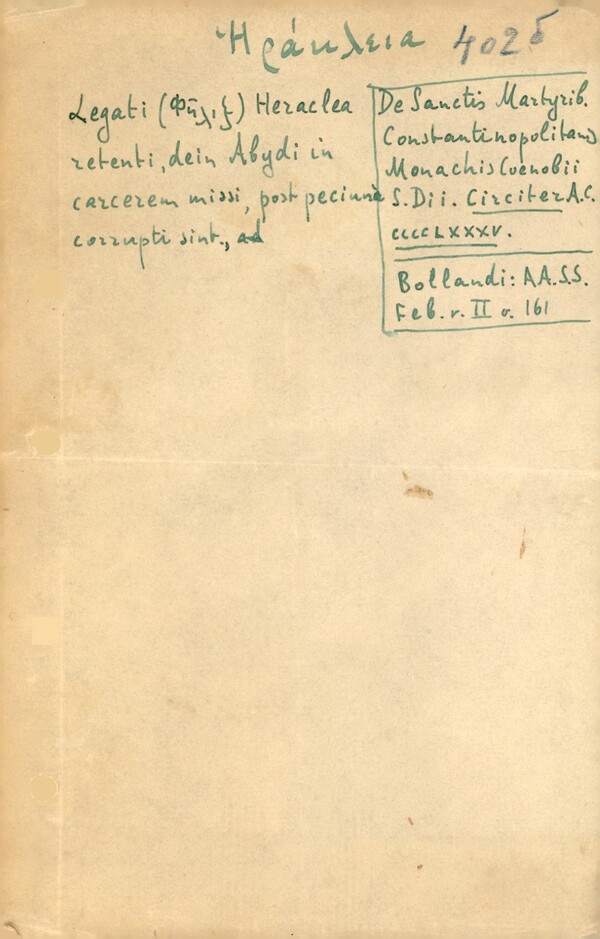 Ἡράκλεια 402δ
Legati (Φῆλιξ) Heraclea
retenti, dein Abydi in
carcerem missi, post peciuna
corrupti sint., ad
De Sanctis Martyrib.
Constantinopolitanis
Monachis Coenobii
S. Dii. Circiter A.C.
CCCCLXXXV.
Bollandi: AA.S.S.
Feb. v. II σ. 161